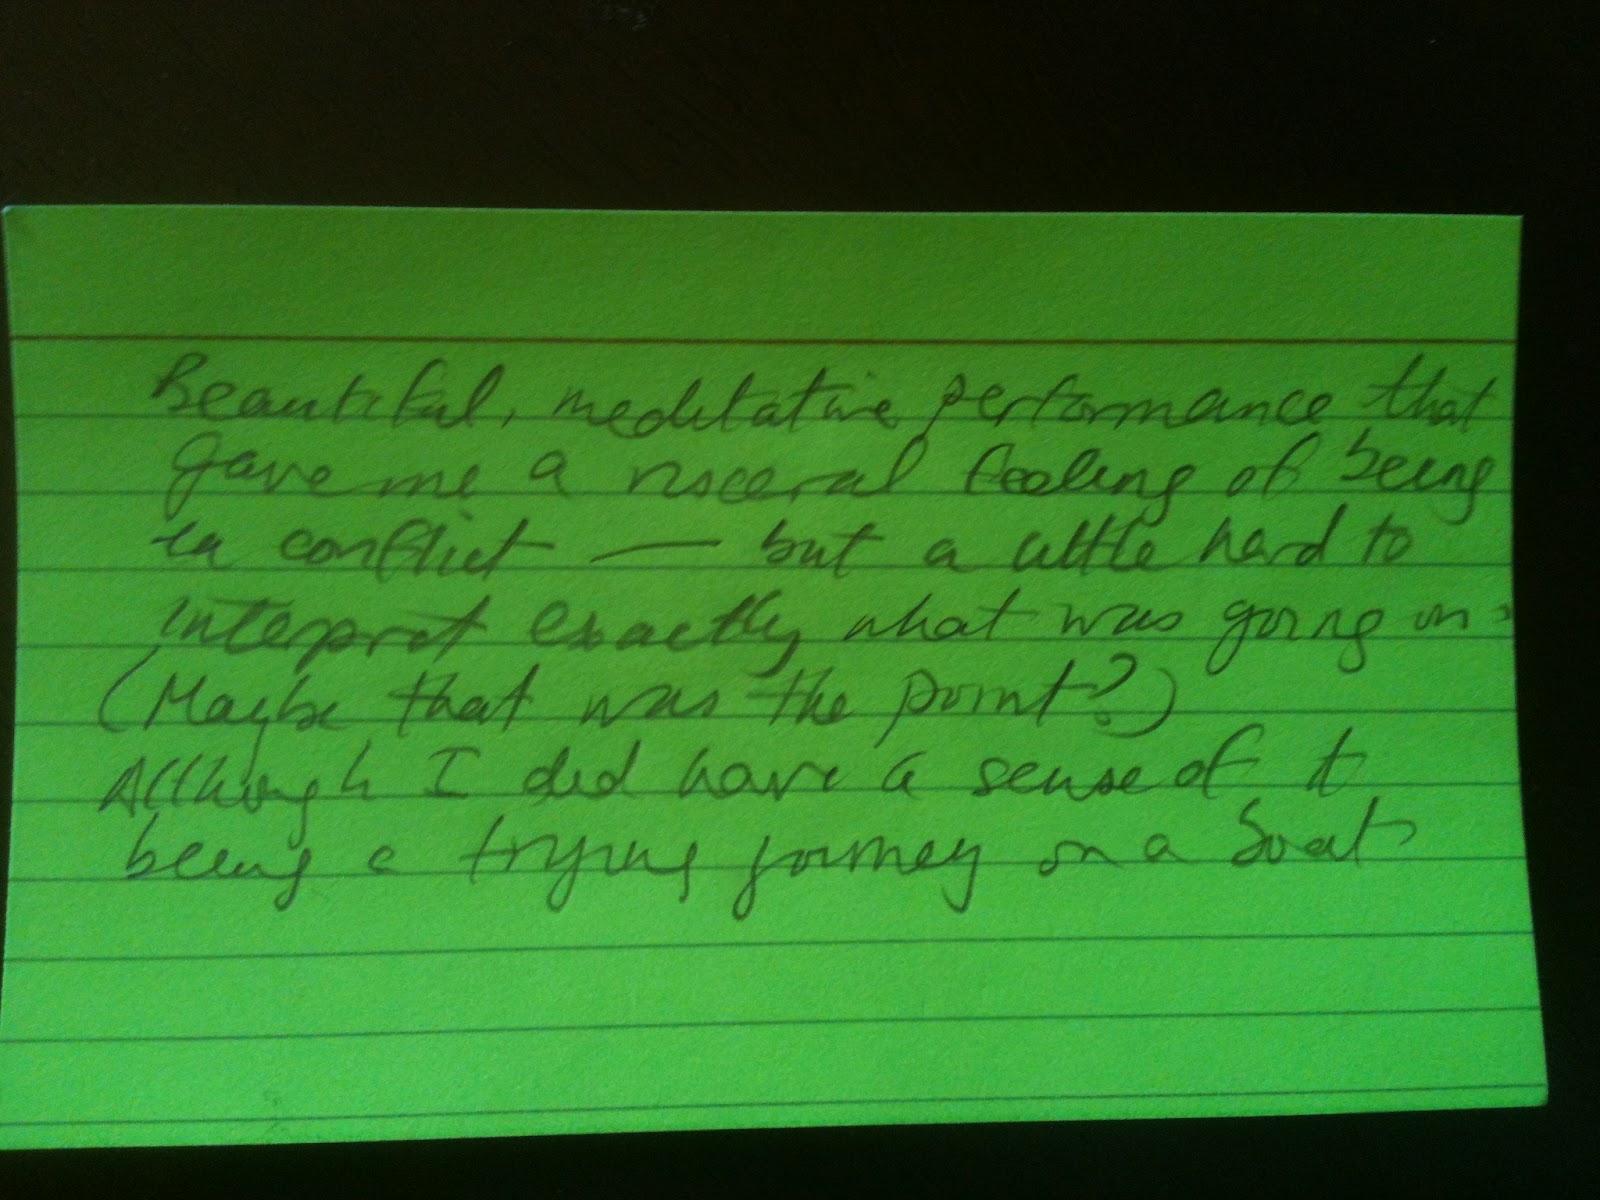 Beautiful, meditative performance that
gave me a visceral feeling of being
in conflict — but a little hard to
interpret exactly what was going on.
(Maybe that was the point?)
Although I did have a sense of it
being a trying journey on a boat